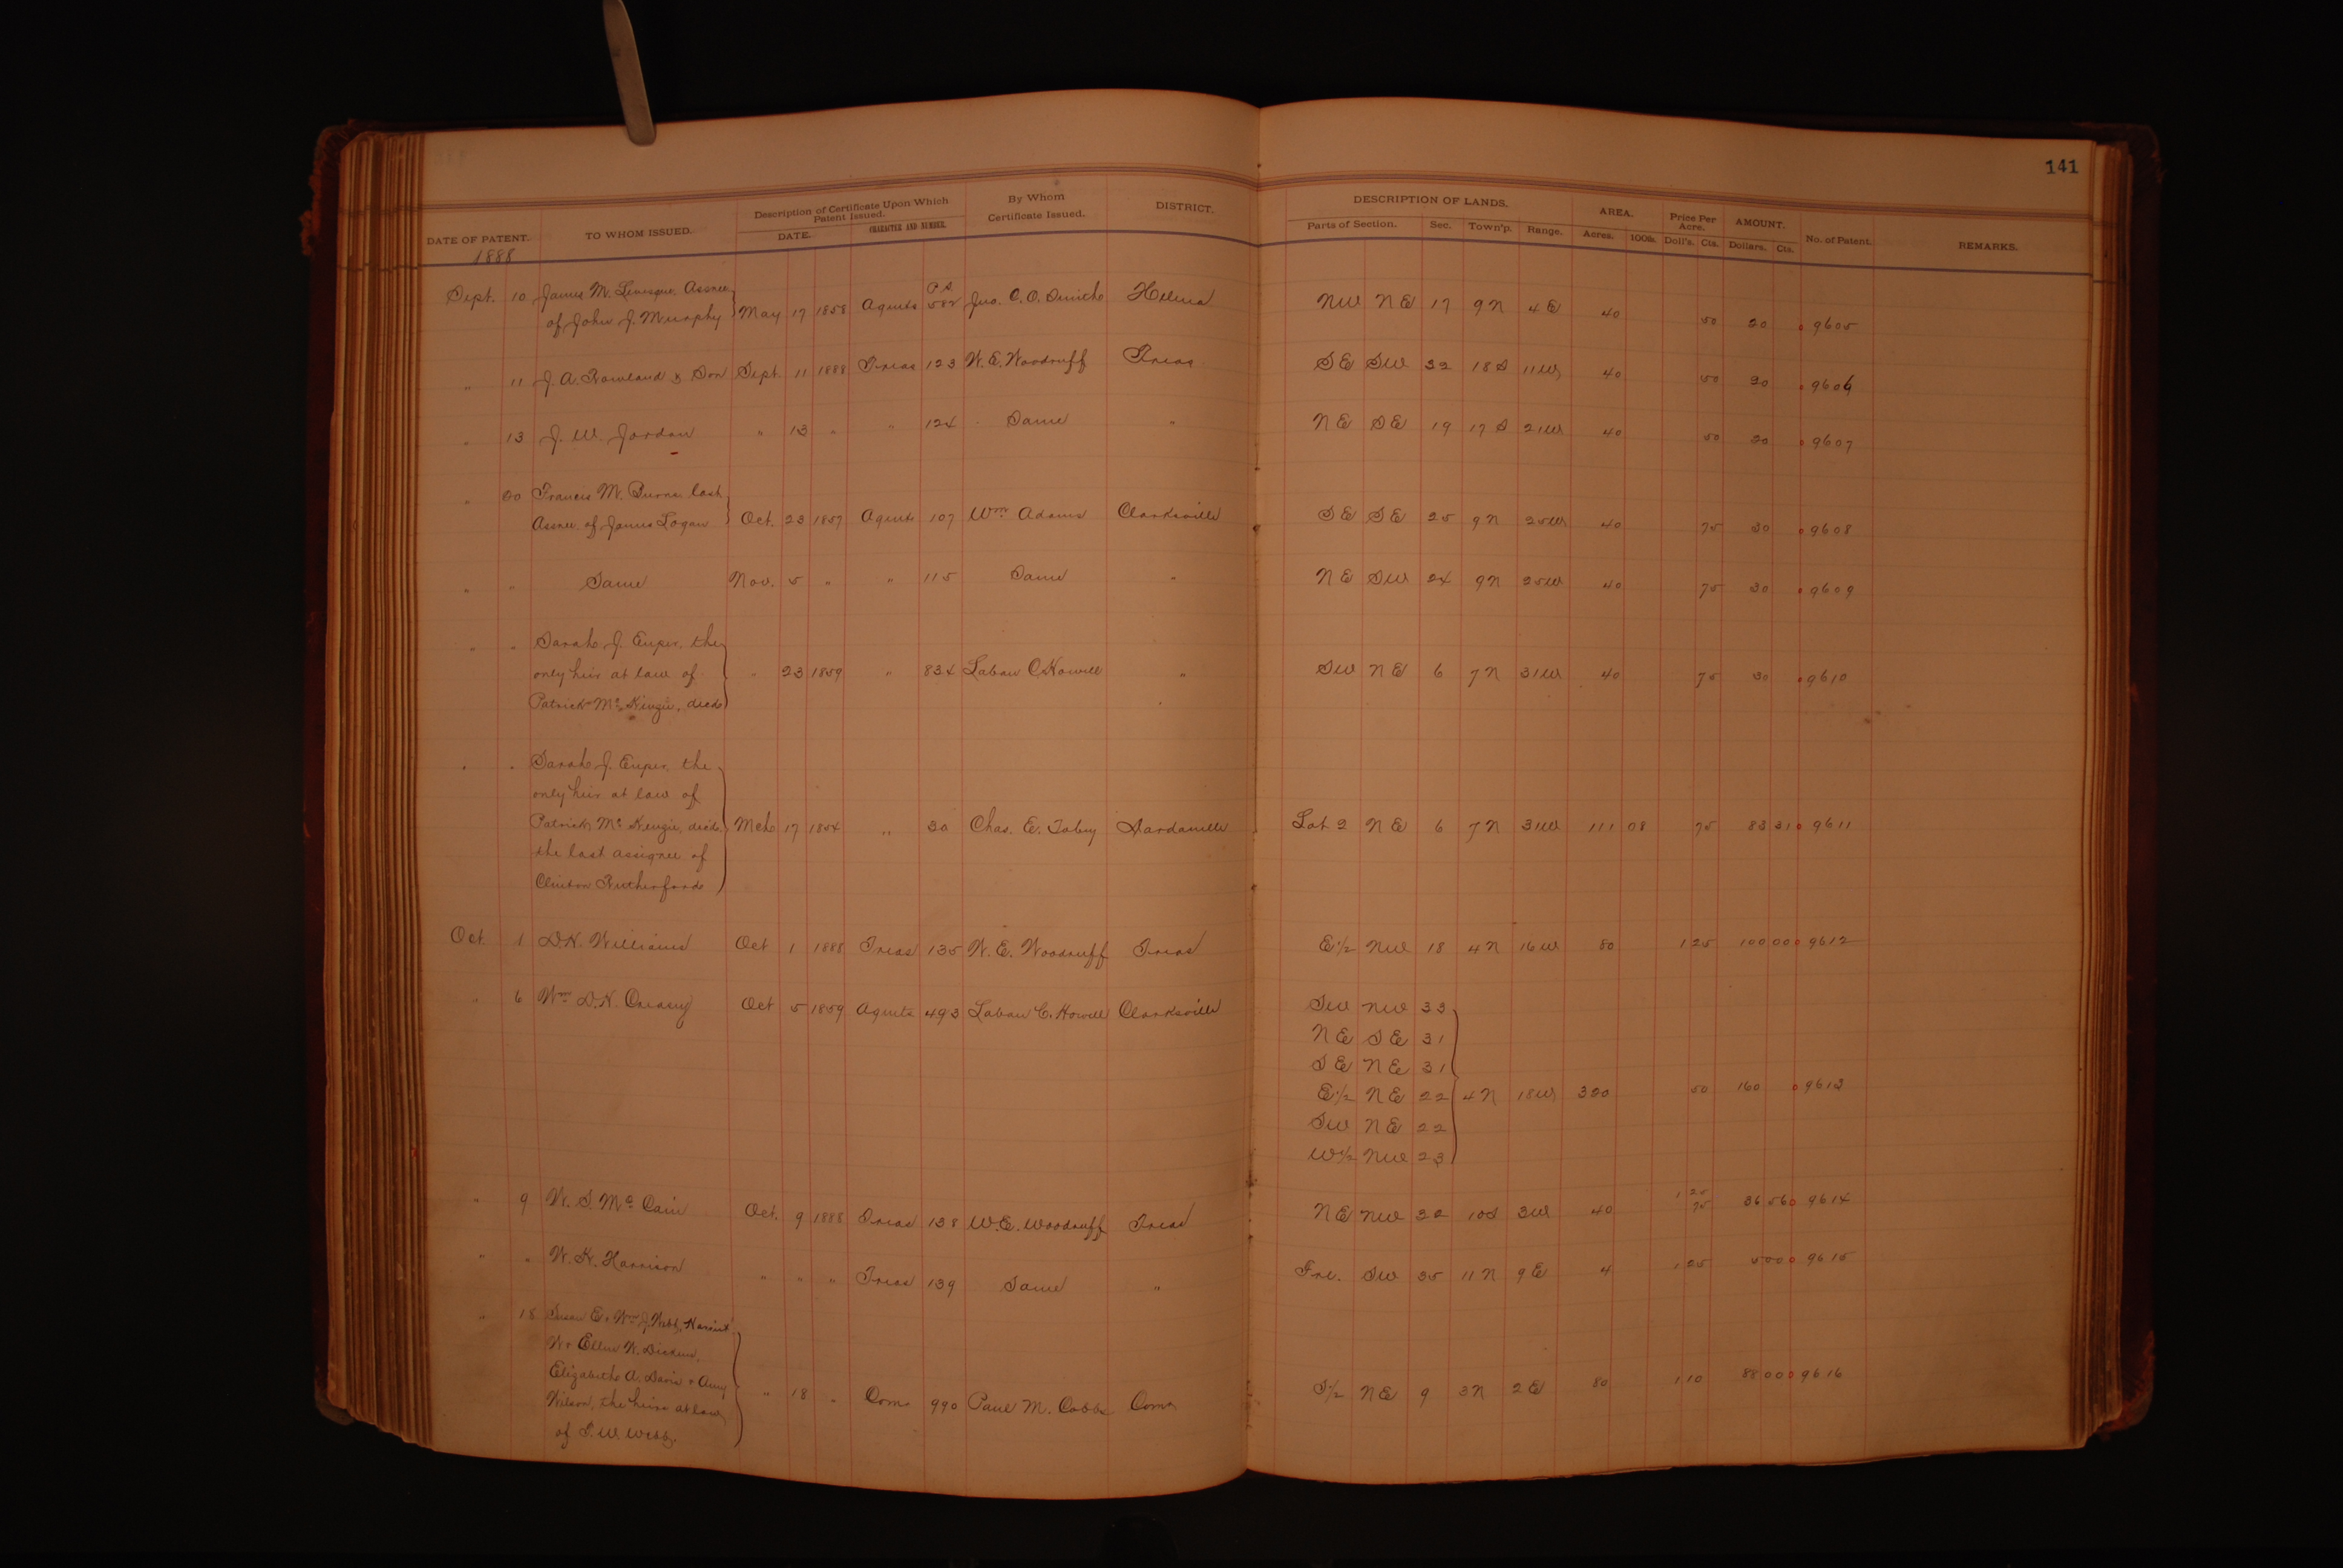 141
DATE OF PATENT. TO WHOM ISSUED. Description of Certificate Upon Which Patent Issued. DATE. CHARACTER AND NUMBER. By Whom Certificate Issued. DISTRICT. DESCRIPTION OF LANDS. Parts of Section. Sec. Town'p. Range. AREA. Acres. 100th. Price Per Acre. Doll's. Cts. AMOUNT. Dollars. Cts. No. of Patent. REMARKS.
1888
Sept. 10 James M. Levesque, Assnee
of John J. Murphy May 17 1858 Agents 582 Jno. C. O. Helena NW NE 17 9N 4E 40 50 20 9605
" 11 J. A. Rowland & Son Sept. 11 1888 Treas 123 W. E. Woodruff Treas SE SW 32 18S 11W 40 50 20 9606
" 13 J. W. Jordan " 13 " " 124 Same " NE SE 19 17S 21W 40 50 20 9607
" 20 Francis M. Burns last
Assnee. of James Logan Oct. 23 1857 Agents 107 Wm Adams Clarksville SE SE 25 9N 25W 40 75 30 9608
" " Same Nov. 5 " " 115 Same " NE SW 24 9N 25W 40 75 30 9609
" " Sarah J. Euper, the
only heir at law of " 23 1859 " 834 Laban C. Howell " SW NE 6 7N 31W 40 75 30 9610
Patrick McKenzie, decd.
" " Sarah J. Euper, the
only heir at law of
Patrick McKenzie, decd. Mch 17 1854 " 30 Chas. E. Tobey Dardanelle Lot 2 NE 6 7N 31W 111 08 75 83 31 9611
the last assignee of
Clinton Rutherford
Oct. 1 D.H. Williams Oct 1 1888 Treas 135 W. E. Woodruff Treas E½ NW 18 4N 16W 80 1 25 100 00 9612
" 6 Wm D.H. Creasey Oct 5 1859 Agents 493 Laban C. Howell Clarksville SW NW 33
NE SE 31
SE NE 31
E½ NE 22 4N 18W 320 50 160 9613
SW NE 22
W½ NW 23
" 9 W. S. McCain Oct. 9 1888 Treas 138 W.E. Woodruff Treas NE NW 30 10S 3W 40 36 56 9614
" " W. H. Harrison " " " Treas 139 Same " Frl. SW 35 11N 9E 4 1 25 5 00 9615
" 18 Susan E. & Wm J. Webb, Harriet
W. & Ellen W. Dickens,
Elizabeth A. Davis & Amy " 18 " Coms 990 Paul M. Cobbs Coms S½ NE 9 3N 2E 80 1 10 88 00 9616
Wilson, the heirs at law
of T. W. Webb.